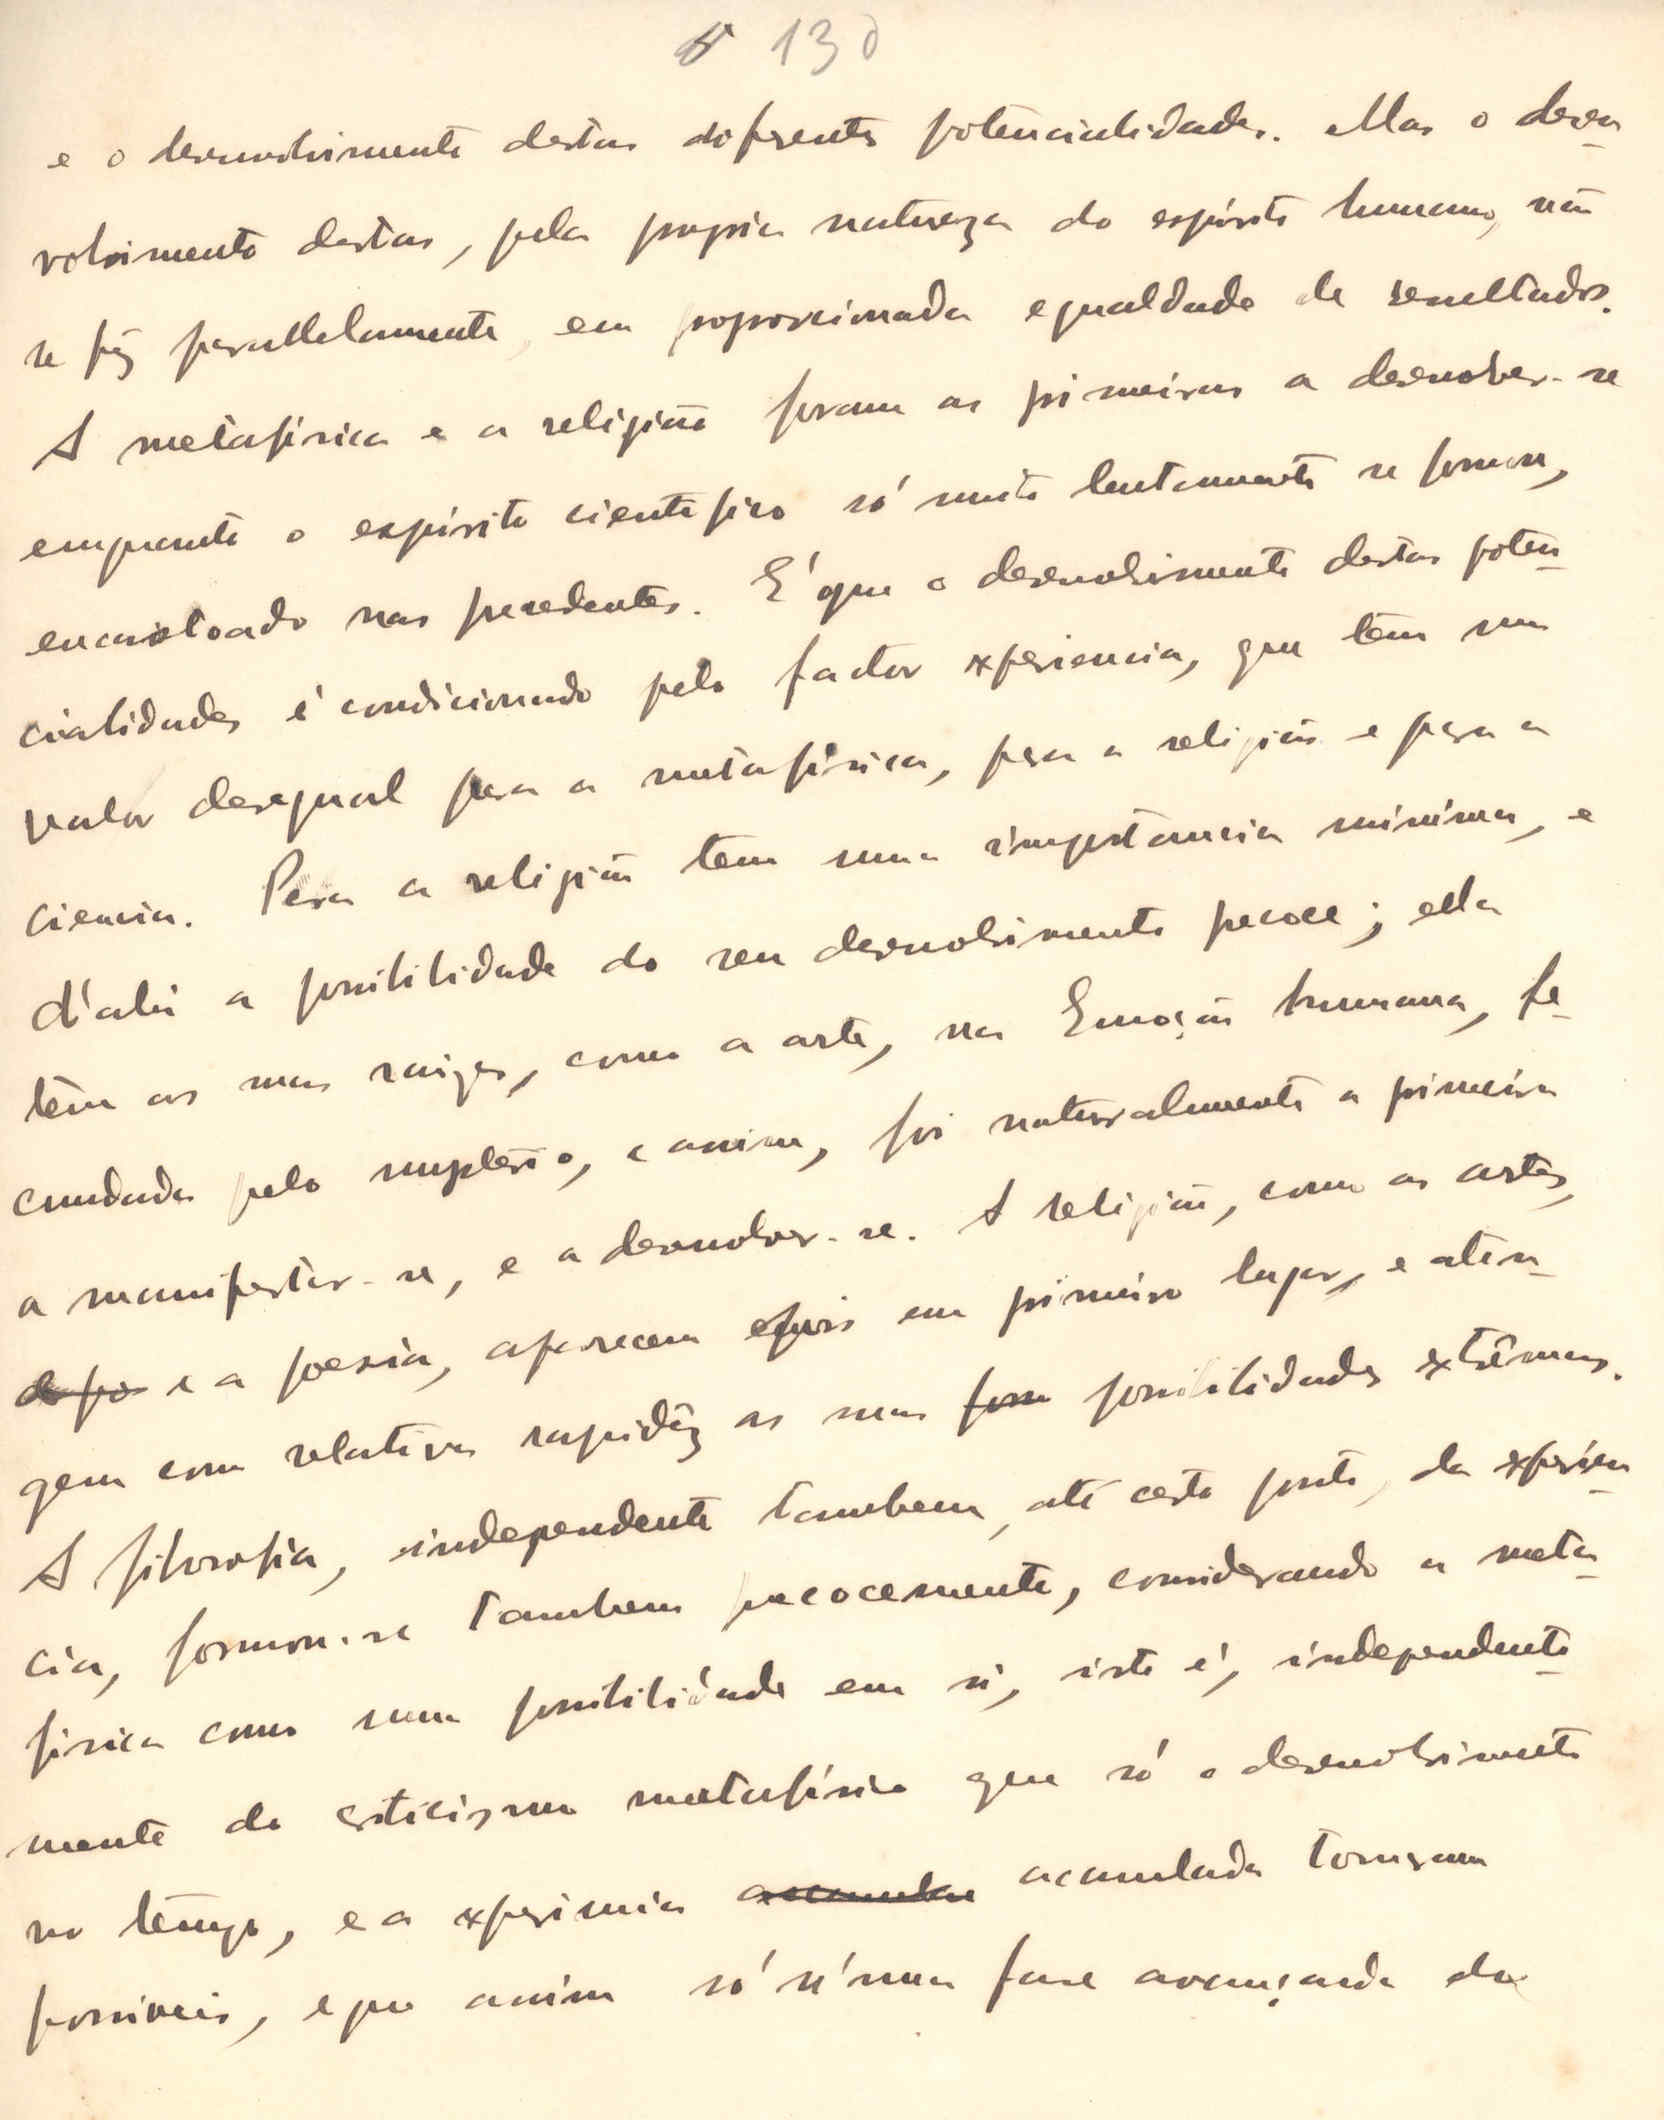 130
e o desenvolvimento destas diferentes potencialidades. Mas o desen-
volvimento destas, pela propria natureza do espirito humano, não
se fêz parallelamente, em proporcionada egualdade de resultados.
A metafísica e a religião foram as primeiras a desenvolver-se
emquanto o espírito cientifico só muito lentamente se formou,
encaixotoado nas precedentes. É que o desenvolvimento destas poten-
cialidades é condicionado pelo factor experiencia, que têm um
valor desegual para a metafísica, para a religião e para a
ciencia. Para a religião tem uma importancia minima, e
d'ahi a possibilidade do seu desenvolvimento precoce; ella
têm as suas raizes, como a arte, na Emoção humana, fe-
cundada pelo mystério, e assim, foi naturalmente a primeira
a manifestar-se, e a desenvolver-se. A religião, como as artes,
e a poesia, aparecem em primeiro lugar, e atin-
gem com relativa rapidêz as suas possibilidades extrêmas.
A filosofia, independente tambem, até certo ponto, da experien-
cia, formou-se tambem precocemente, considerando a meta-
fisica como uma possibilidade em si, isto é, independente-
mente do criticismo metafísico que só o desenvolvimento
no têmpo, e a experiencia acumulada tornaram
possiveis, e que assim só n'uma fase avançada da